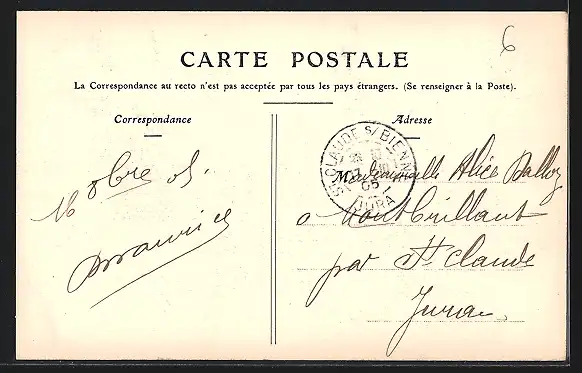 6
CARTE POSTALE
La Correspondance au recto n'est pas acceptée par tous les pays étrangers. (Se renseigner à la Poste).
Correspondance
Adresse
16 8bre 05.
Maurice
ST-CLAUDE S/BIENNE
05
JURA
Mademoiselle Alice Dalloz
a Montbrillant
par St Claude
Jura.